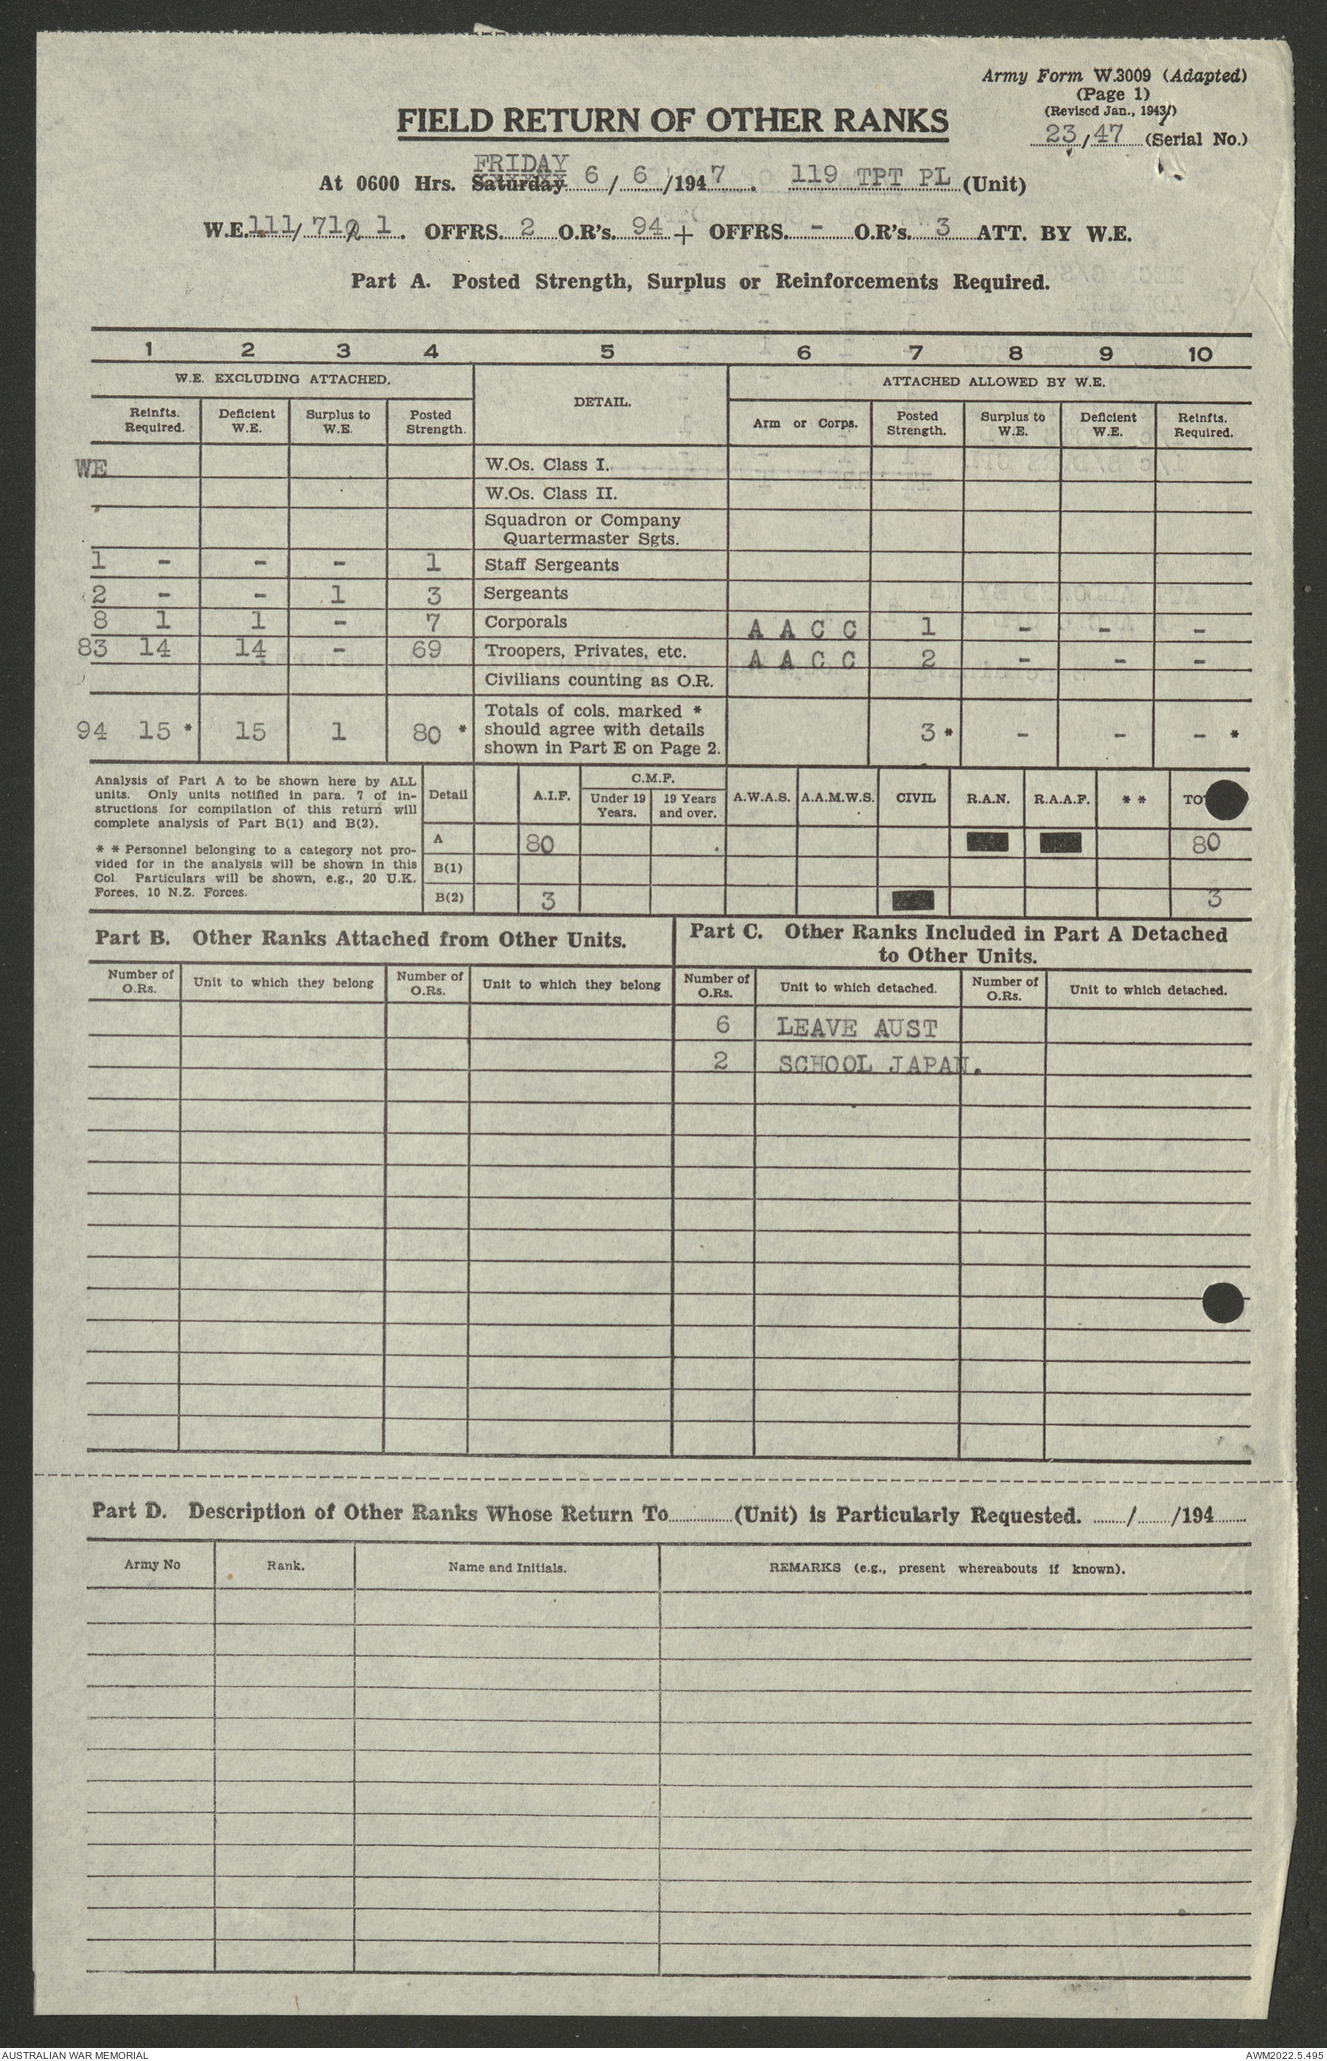 Army Form W.3009 (Adapted)
(Page 1)
(Revised Jan., 1943)
23/47 (Serial No.)
FIELD RETURN OF OTHER RANKS
FRIDAY
At 0600 Hrs. Saturday 6 / 6 /1947. 119 TPT PL (Unit)
W.E. 111/ 712 1. OFFRS. 2 O.R's. 94 + OFFRS. - O.R's. 3 ATT. BY W.E.
Part A. Posted Strength, Surplus or Reinforcements Required.
1 2 3 4 5 6 7 8 9 10
W.E. EXCLUDING ATTACHED. DETAIL. ATTACHED ALLOWED BY W.E.
Reinfts. Required. Deficient W.E. Surplus to W.E. Posted Strength. Arm or Corps. Posted Strength. Surplus to W.E. Deficient W.E. Reinfts. Required.
WE W.Os. Class I.
W.Os. Class II.
Squadron or Company
Quartermaster Sgts.
1 - - - 1 Staff Sergeants
2 - - 1 3 Sergeants
8 1 1 - 7 Corporals A A C C 1 - - -
83 14 14 - 69 Troopers, Privates, etc. A A C C 2 - - -
Civilians counting as O.R.
Totals of cols. marked *
94 15 * 15 1 80 * should agree with details 3 * - - - *
shown in Part E on Page 2.
Analysis of Part A to be shown here by ALL
units. Only units notified in para. 7 of in-
structions for compilation of this return will
complete analysis of Part B(1) and B(2).
* * Personnel belonging to a category not pro-
vided for in the analysis will be shown in this
Col. Particulars will be shown, e.g., 20 U.K.
Forces, 10 N.Z. Forces.
Detail A.I.F. C.M.F. Under 19 Years. 19 Years and over. A.W.A.S. A.A.M.W.S. CIVIL R.A.N. R.A.A.F. * * TO
A 80 80
B(1)
B(2) 3 3
Part B. Other Ranks Attached from Other Units.
Part C. Other Ranks Included in Part A Detached
to Other Units.
Number of O.Rs. Unit to which they belong Number of O.Rs. Unit to which they belong Number of O.Rs. Unit to which detached. Number of O.Rs. Unit to which detached.
6 LEAVE AUST
2 SCHOOL JAPAN.
Part D. Description of Other Ranks Whose Return To............(Unit) is Particularly Requested. ......./......./194.......
Army No Rank. Name and Initials. REMARKS (e.g., present whereabouts if known).
AUSTRALIAN WAR MEMORIAL AWM2022.5.495